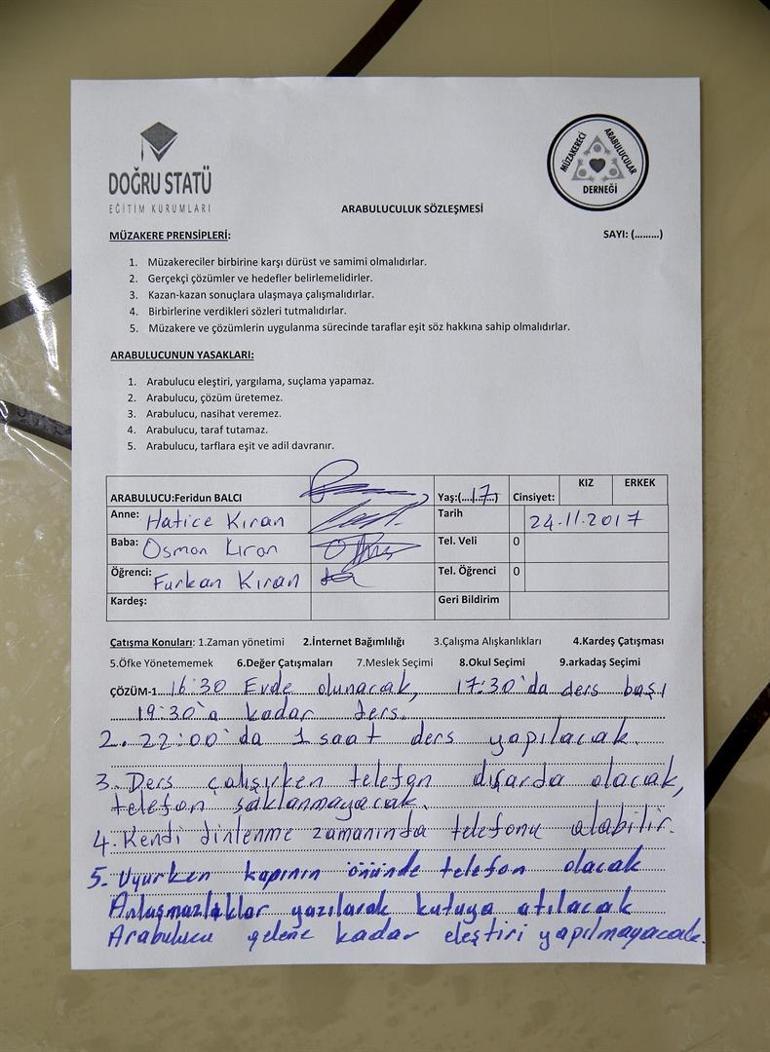 DOĞRU STATÜ
EĞİTİM KURUMLARI
MÜZAKERECİ ARABULUCULAR
DERNEĞİ
ARABULUCULUK SÖZLEŞMESİ
MÜZAKERE PRENSİPLERİ:
SAYI: (.........)
1. Müzakereciler birbirine karşı dürüst ve samimi olmalıdırlar.
2. Gerçekçi çözümler ve hedefler belirlemelidirler.
3. Kazan-kazan sonuçlara ulaşmaya çalışmalıdırlar.
4. Birbirlerine verdikleri sözleri tutmalıdırlar.
5. Müzakere ve çözümlerin uygulanma sürecinde taraflar eşit söz hakkına sahip olmalıdırlar.
ARABULUCUNUN YASAKLARI:
1. Arabulucu eleştiri, yargılama, suçlama yapamaz.
2. Arabulucu, çözüm üretemez.
3. Arabulucu, nasihat veremez.
4. Arabulucu, taraf tutamaz.
5. Arabulucu, tarflara eşit ve adil davranır.
ARABULUCU:Feridun BALCI Yaş:(...17...) Cinsiyet: KIZ ERKEK
Anne: Hatice Kıran Tarih 24.11.2017
Baba: Osman Kıran Tel. Veli 0
Öğrenci: Furkan Kıran Tel. Öğrenci 0
Kardeş: Geri Bildirim
Çatışma Konuları: 1.Zaman yönetimi 2.İnternet Bağımlılığı 3.Çalışma Alışkanlıkları 4.Kardeş Çatışması
5.Öfke Yönetememek 6.Değer Çatışmaları 7.Meslek Seçimi 8.Okul Seçimi 9.arkadaş Seçimi
ÇÖZÜM-1. 16:30 Evde olunacak, 17:30'da ders başı
19:30'a kadar ders.
2. 22:00'da 1 saat ders yapılacak.
3. Ders çalışırken telefon dışarda olacak,
telefon saklanmayacak.
4. Kendi dinlenme zamanında telefonu alabilir.
5. Uyurken kapının önünde telefon olacak
Anlaşmazlıklar yazılarak kutuya atılacak
Arabulucu gelene kadar eleştiri yapılmayacak.